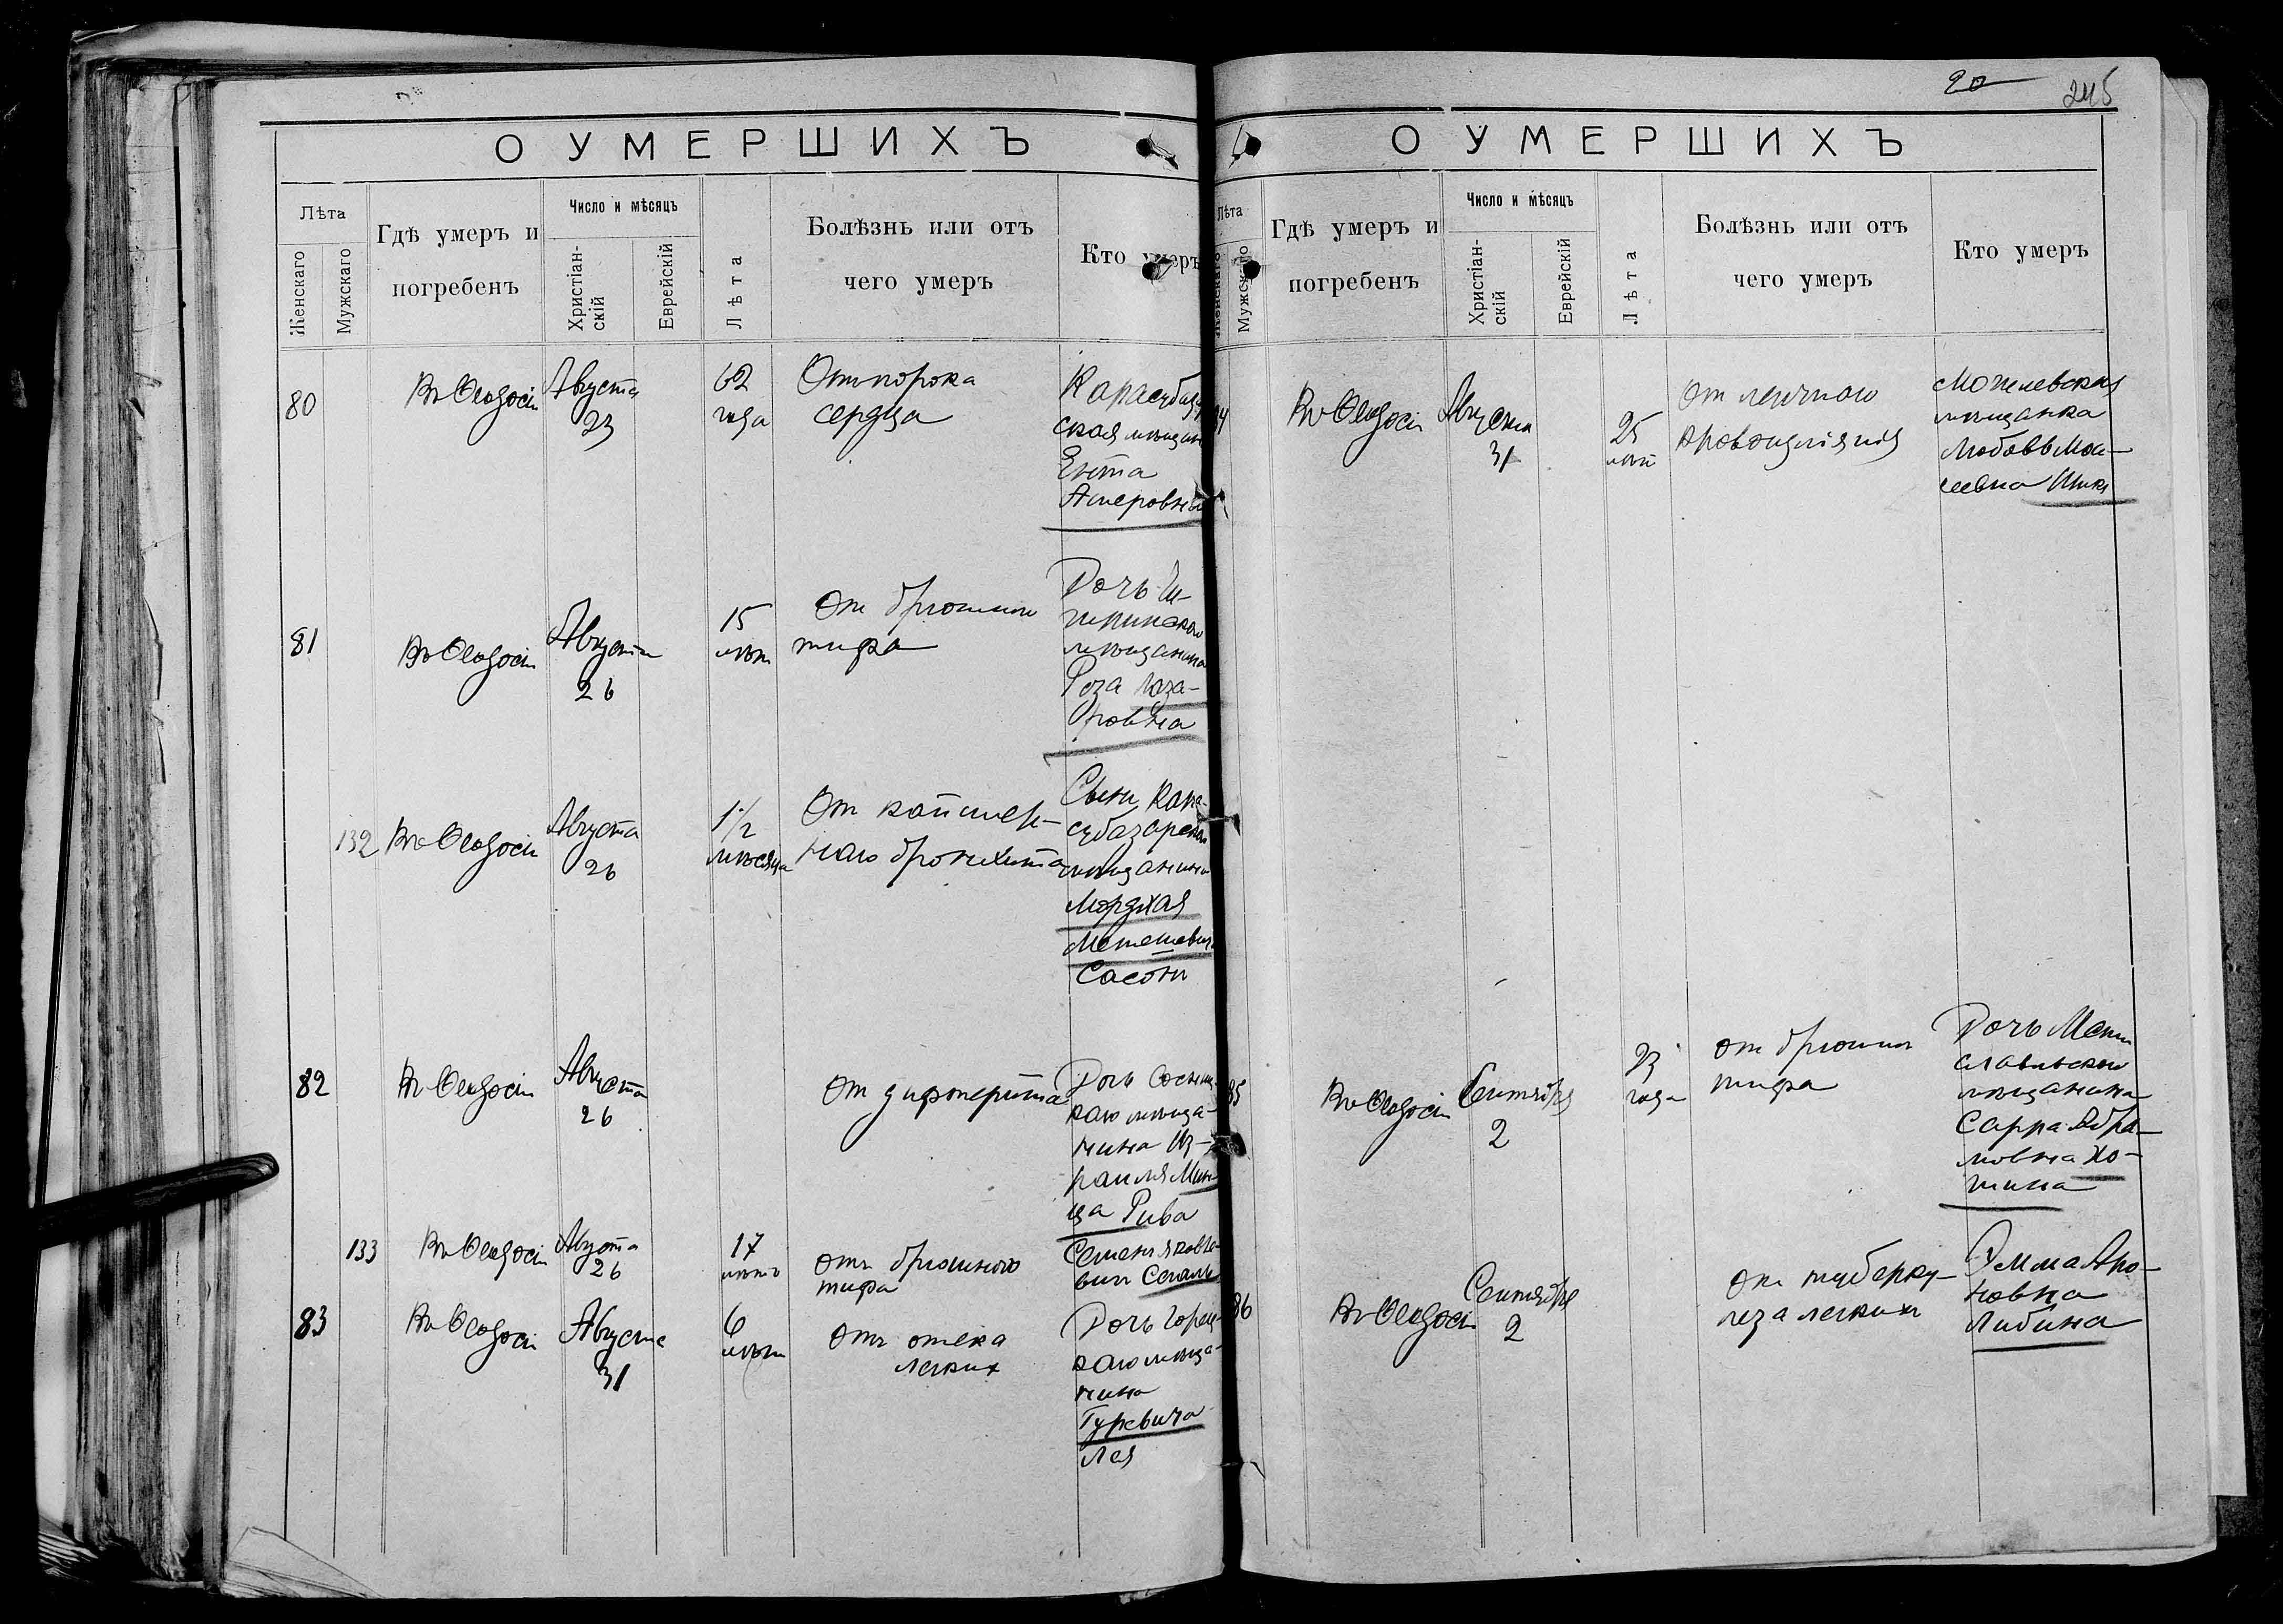 О УМЕРШИХЪ
Лѣта
Женскаго
Мужскаго
Гдѣ умеръ и
погребенъ
Число и мѣсяцъ
Христіан-
скій
Еврейскій
Лѣта
Болѣзнь или отъ
чего умеръ
Кто умеръ
80
Въ Ѳеодосіи
Августа
23
62
года
От порока
сердца
Карасубазар
ская мѣщан
Ента
Ашеровна
81
Въ Ѳеодосіи
Августа
26
15
лѣт
От брюшного
тифа
Дочь
мѣщанина
Роза Лаза-
ровна
132
Въ Ѳеодосіи
Августа
26
1 1/2
мѣсяца
От
наго бронхита
Сынъ Кара-
субазарскаго
мѣщанина
Мордхая
Сасонъ
82
Въ Ѳеодосіи
Августа
26
От дифтерита
Дочь
каго мѣща-
нина Из-
раиля Мин
ца Рива
133
Въ Ѳеодосіи
Августа
26
17
лѣтъ
отъ брюшного
тифа
Семенъ Яковле-
вич Сегаль
83
Въ Ѳеодосіи
Августа
31
6
лѣтъ
Отъ отека
легких
Дочь Горец-
каго мѣща-
нина
Гуревича
Лея
20
245
О УМЕРШИХЪ
Лѣта
Женскаго
Мужскаго
Гдѣ умеръ и
погребенъ
Число и мѣсяцъ
Христіан-
скій
Еврейскій
Лѣта
Болѣзнь или отъ
чего умеръ
Кто умеръ
84
Въ Ѳеодосіи
Августа
31
25
лѣт
от легочного
кровоизліянія
Могилевская
мѣщанка
Любовь Мои-
сеевна
85
Въ Ѳеодосіи
Сентября
2
23
года
от брюшн
тифа
Дочь Мсти
славльскаго
мѣщанина
Сарра Абра-
мовна Хо-
тина
86
Въ Ѳеодосіи
Сентября
2
От туберку-
леза легких
Эмма Аро-
новна
Либина